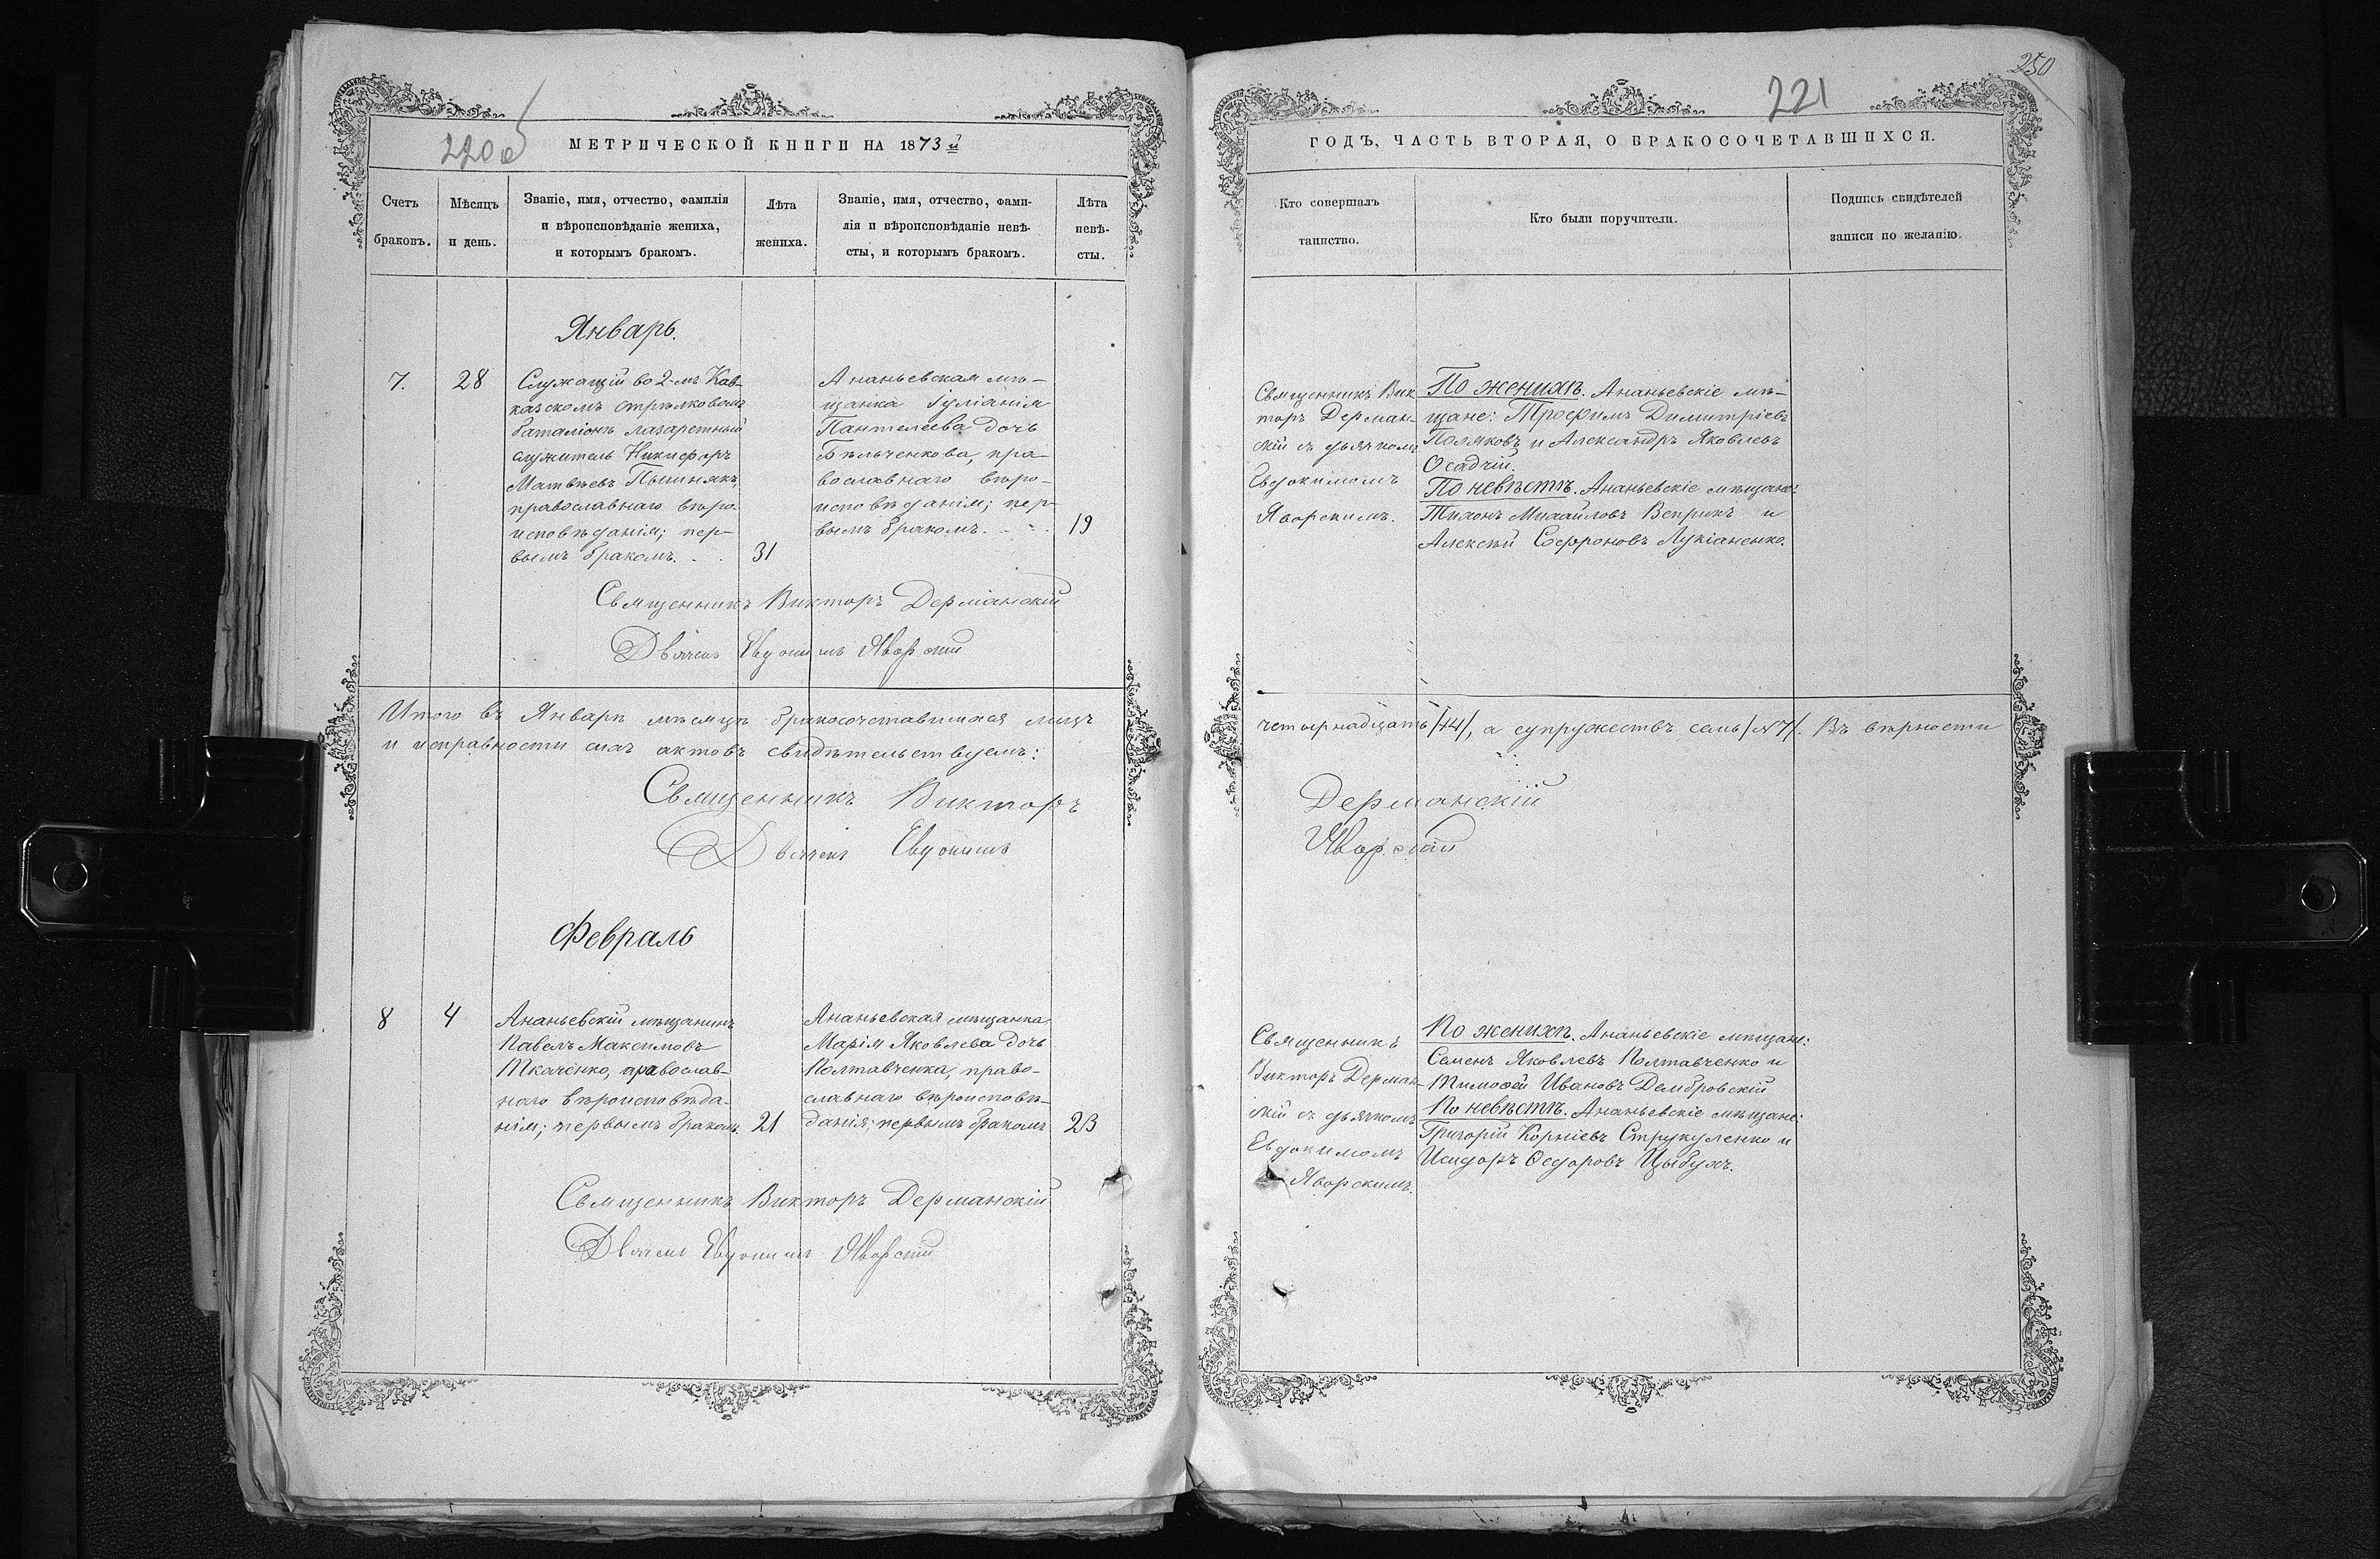 220об
МЕТРИЧЕСКОЙ КНИГИ НА 1873 й
Счетъ браковъ.
Мѣсяцъ и день.
Званіе, имя, отчество, фамилія
и вѣроисповѣданіе жениха,
и которымъ бракомъ.
Лѣта
жениха.
Званіе, имя, отчество, фами-
лія и вѣроисповѣданіе невѣ-
сты, и которымъ бракомъ.
Лѣта
невѣ-
сты.
Январь.
7.
28
Служащій во 2-мъ Кав-
казскомъ стрѣлковомъ
баталіонѣ лазаретный
служитель Никифоръ
Матвѣевъ
православнаго вѣро-
исповѣданія; пер-
вымъ бракомъ. . .
31
Ананьевская мѣ-
щанка Іуліанія
Пантелеева дочь
Бѣльченкова, пра-
вославнаго вѣро-
исповѣданія; пер-
вымъ бракомъ. . .
19
Священникъ Викторъ Дерманскій
Дьячекъ Евдокимъ Яворскій
Итого въ Январѣ мѣсяцѣ бракосочетавшихся лицъ
и исправности актовъ свидѣтельствуемъ:
Священникъ Викторъ
Дьячекъ Евдокимъ
Февраль
8
4
Ананьевскій мѣщанинъ
Павелъ Максимовъ
Ткаченко, православ-
наго вѣроисповѣда-
нія; первымъ бракомъ.
21
Ананьевская мѣщанка
Марія Яковлева дочь
Полтавченка, право-
славнаго вѣроисповѣ-
данія; первымъ бракомъ
23
Священникъ Викторъ Дерманскій
Дьячекъ Евдокимъ Яворскій
250
221
ГОДЪ, ЧАСТЬ ВТОРАЯ, О БРАКОСОЧЕТАВШИХСЯ.
Кто совершалъ
таинство.
Кто были поручители.
Подпись свидѣтелей
записи по желанію.
Священникъ Вик
торъ Дерман-
скій съ дьячкомъ
Евдокимомъ
Яворскимъ.
По женихѣ. Ананьевскіе мѣ-
щане: Трофимъ Димитріевъ
Поляковъ и Александръ Яковлевъ
Осадчій.
По невѣстѣ. Ананьевскіе мѣщане:
Тихонъ Михайловъ Веприкъ и
Алексѣй Софроновъ Лукіаненко.
четырнадцать /14/, а супружествъ семь /№7/. Въ вѣрности
Дерманскій
Яворскій
Священникъ
Викторъ Дерман-
скій съ дьячкомъ
Евдокимомъ
Яворскимъ.
По женихѣ. Ананьевскіе мѣщане:
Семенъ Яковлевъ Полтавченко и
Тимофей Ивановъ Домбровскій
По невѣстѣ. Ананьевскіе мѣщане:
Григорій Корніевъ Струкуленко и
Исидоръ Ѳедоровъ Цыбухъ.